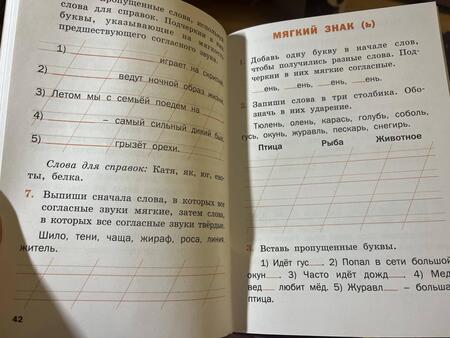 пропущенные слова, используя
слова для справок. Подчеркни в них
буквы, указывающие на мягкость
предшествующего согласного звука.
1) играет на скрипке
2) ведут ночной образ жизни.
3) Летом мы с семьёй поедем на
4) – самый сильный дикий бык.
5) грызёт орехи.
Слова для справок: Катя, як, юг, ено-
ты, белка.
7. Выпиши сначала слова, в которых все
согласные звуки мягкие, затем слова,
в которых все согласные звуки твёрдые.
Шило, тени, чаща, жираф, роса, линия,
житель.
42
МЯГКИЙ ЗНАК (ь)
1. Добавь одну букву в начале слов,
чтобы получились разные слова. Под-
черкни в них мягкие согласные.
__ень, __ень, __ень, __ень.
2. Запиши слова в три столбика. Обо-
значь в них ударение.
Тюлень, олень, карась, голубь, соболь,
гусь, окунь, журавль, пескарь, снегирь.
Птица Рыба Животное
3. Вставь пропущенные буквы.
1) Идёт гус__. 2) Попал в сети большой
окун__. 3) Часто идёт дожд__. 4) Мед
вед__ любит мёд. 5) Журавл__ – больша
птица.